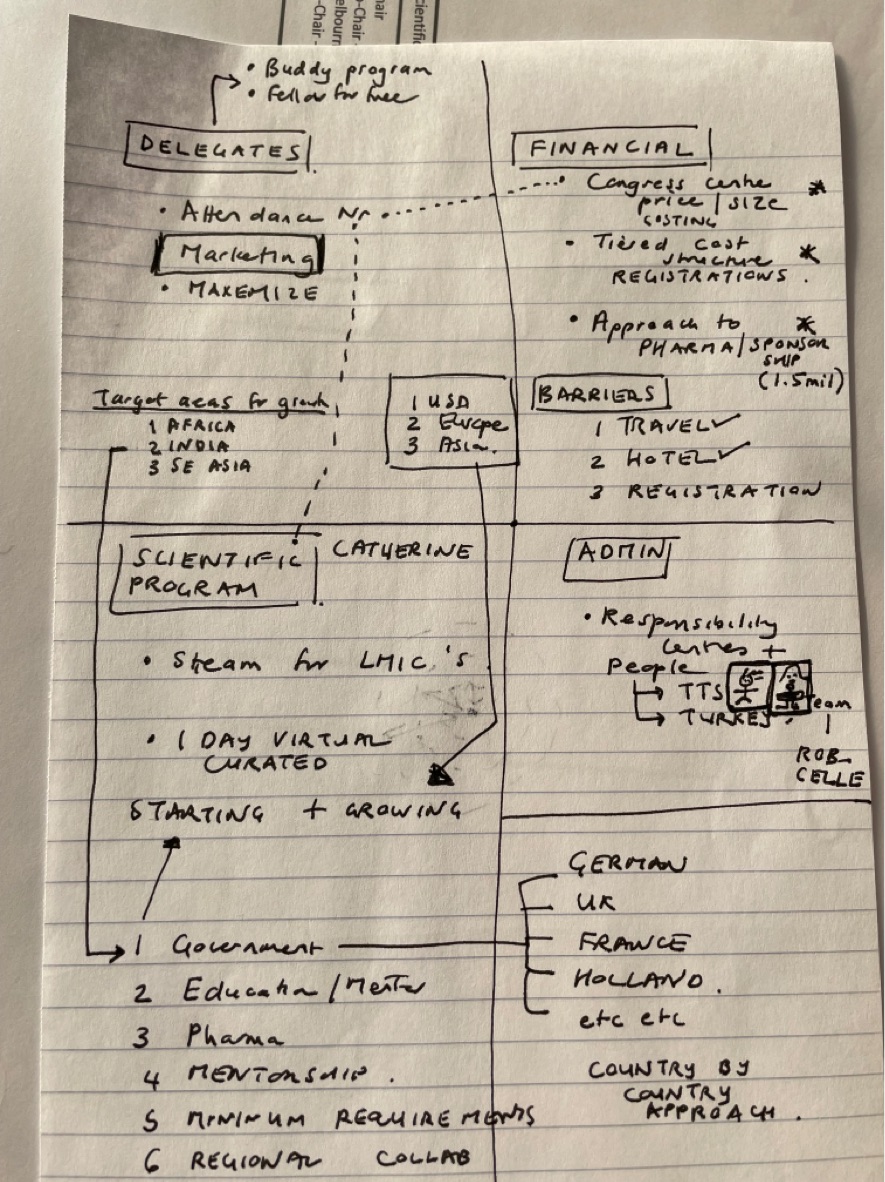 cientific
hair
o-Chair
-Chair -
elbourn
• Buddy program
• Fellow for free
DELEGATES
• Attendance Nr
Marketing
• MAXEMIZE
Target areas for growth
1 AFRICA
2 INDIA
3 SE ASIA
1 USA
2 Europe
3 Asia.
FINANCIAL
• Congress centre
price / SIZE
COSTING
• Tiered cost
structure
REGISTRATIONS.
• Approach to
PHARMA / SPONSOR
SHIP
(1.5mil)
BARRIERS
1 TRAVEL
2 HOTEL
3 REGISTRATION
SCIENTIFIC
PROGRAM
CATHERINE
• Steam for LMIC's
• 1 DAY VIRTUAL
CURATED
STARTING + GROWING
1 Government
2 Education / Mentor
3 Pharma
4 MENTORSHIP.
5 MINIMUM REQUIREMENTS
6 REGIONAL COLLAB
ADMIN
• Responsibility
centres +
People
TTS
TURKEY
Team
ROB
CELLE
GERMAN
UK
FRANCE
HOLLAND.
etc etc
COUNTRY BY
COUNTRY
APPROACH.